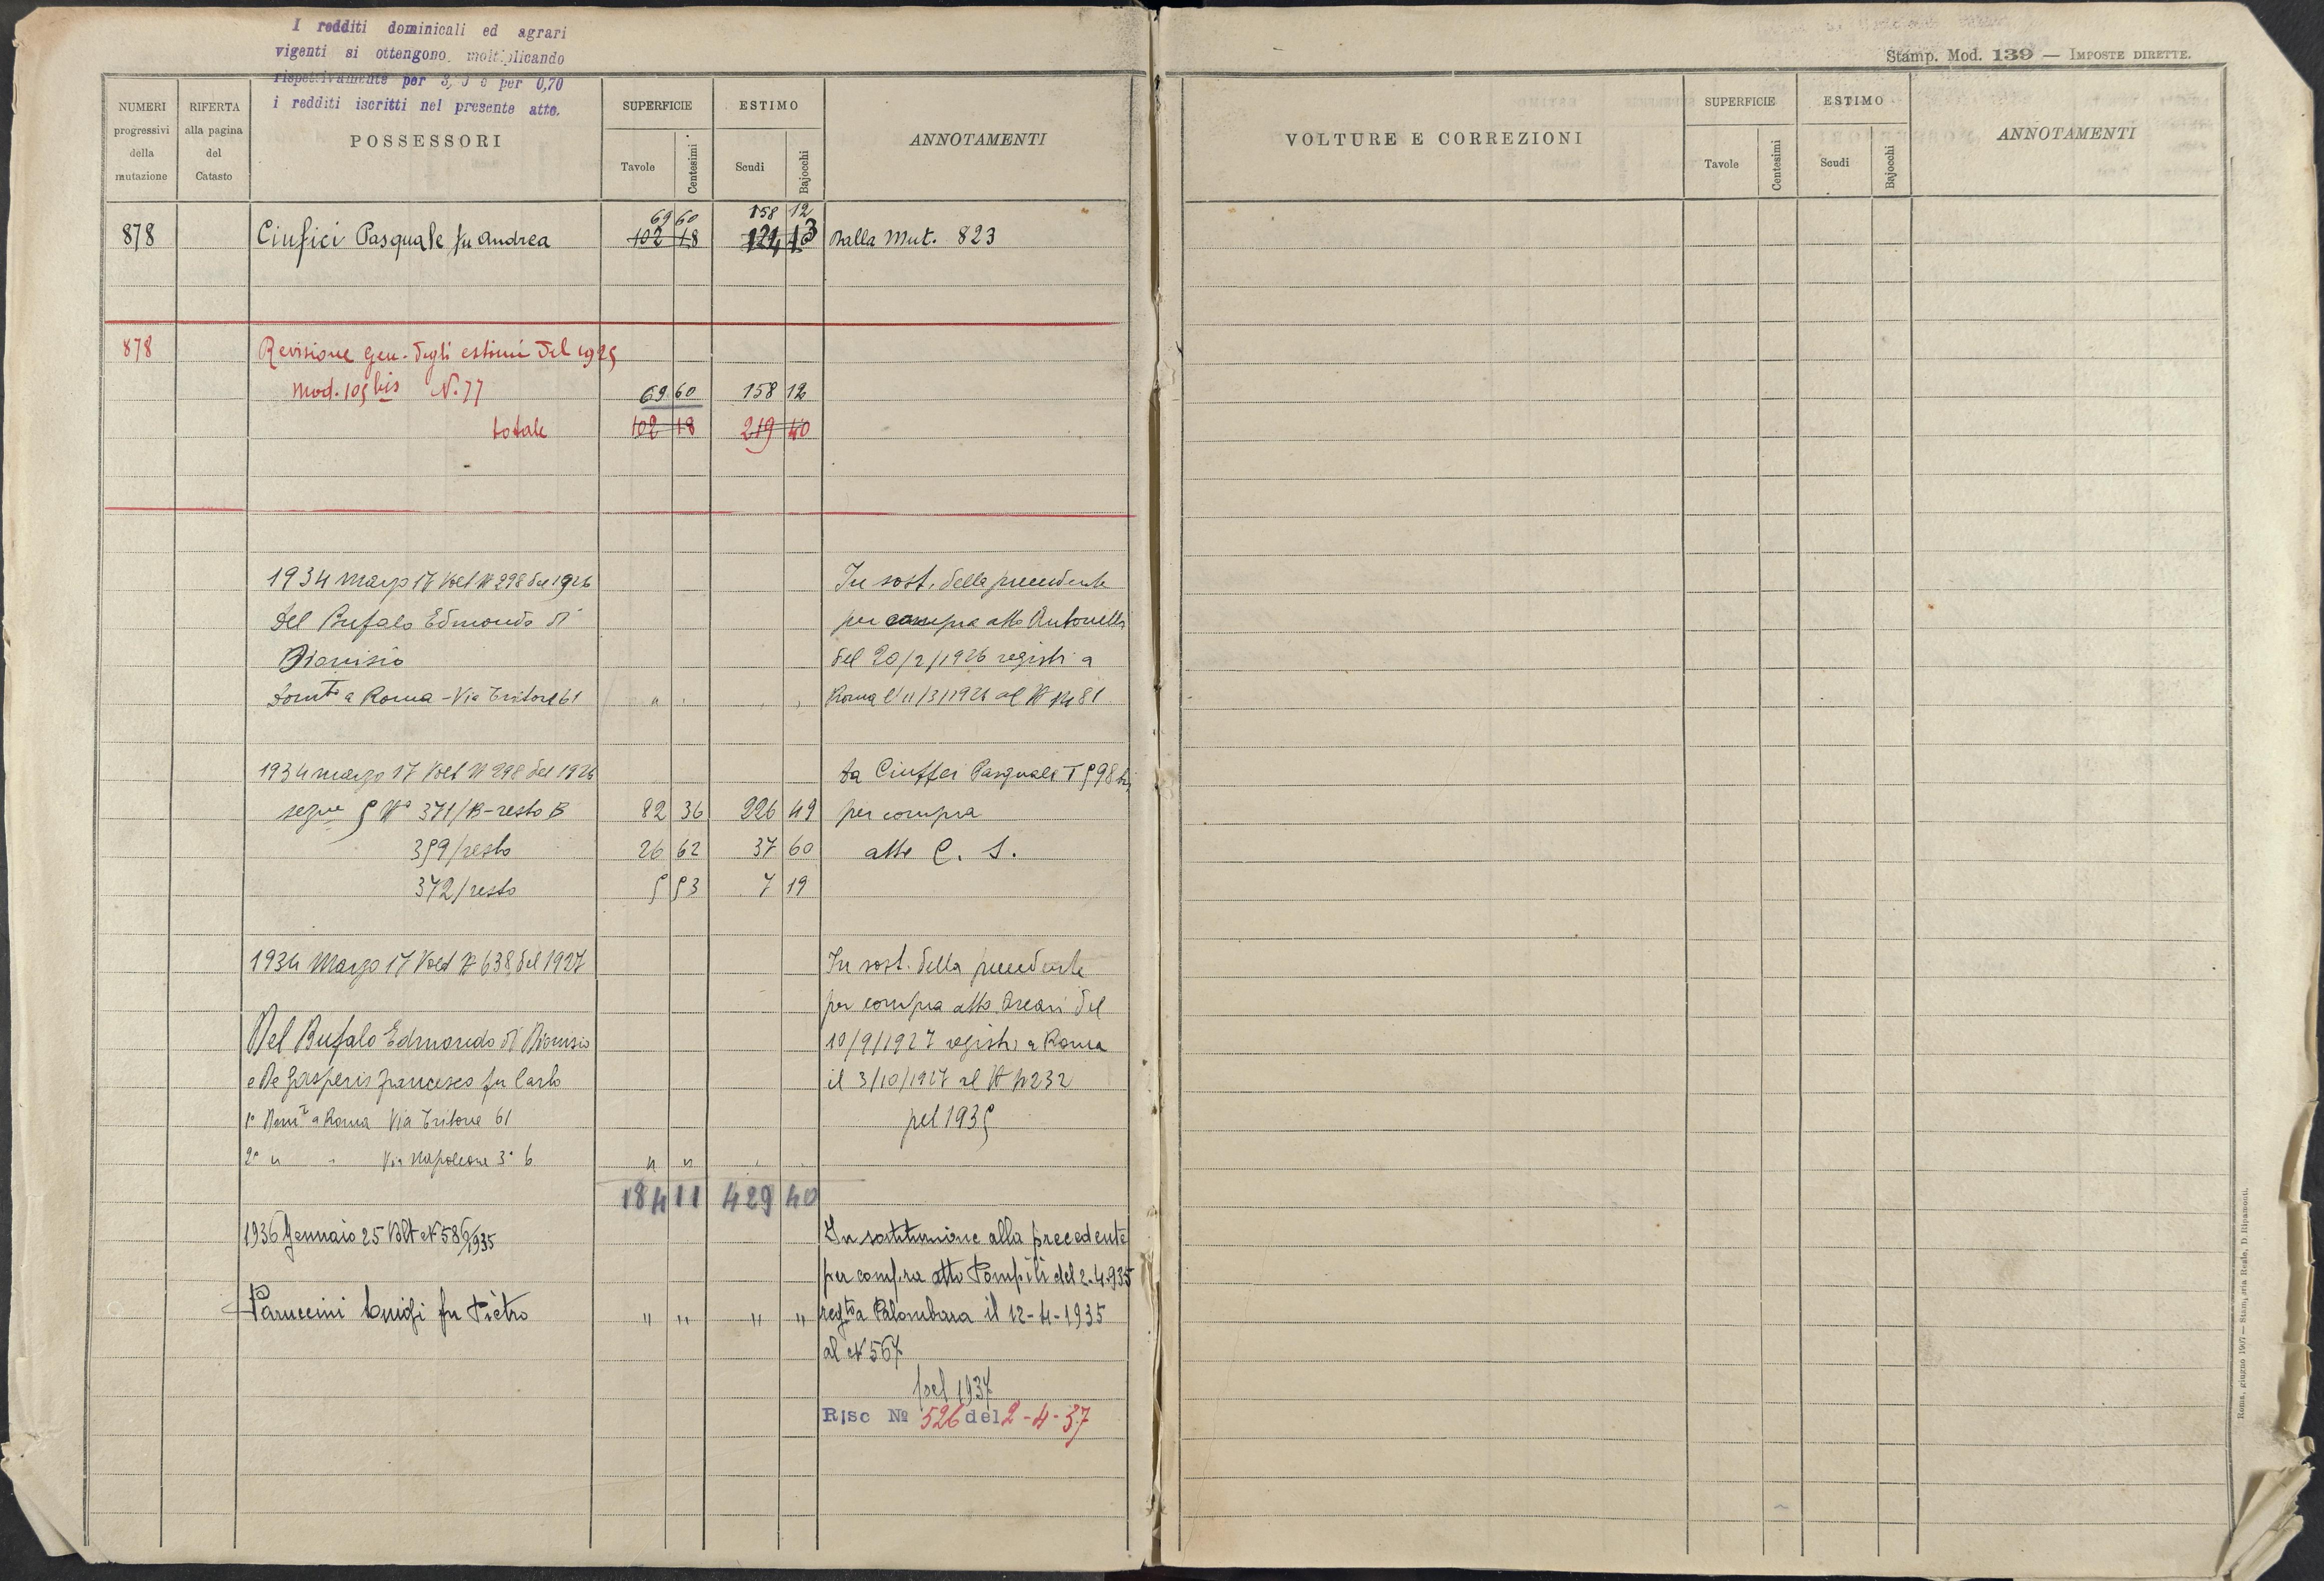 I redditi dominicali ed agrari
vigenti si ottengono moltiplicando
rispettivamente per 3, e per 0,70
i redditi iscritti nel presente atto.
Stamp. Mod. 139 — IMPOSTE DIRETTE.
NUMERI progressivi della mutazione
RIFERTA alla pagina del Catasto
POSSESSORI
SUPERFICIE
Tavole Centesimi
ESTIMO
Scudi Bajocchi
ANNOTAMENTI
69 60 158 12
878 Ciufici Pasquale fu Andrea 102 18 124 13 Dalla Mut. 823
878 Revisione gen. degli estimi del 1925
Mod. 105 bis N. 77 69 60 158 12
totale 102 18 219 40
1934 Marzo 17 Volt N 298 del 1926 In sost. della precedente
Del Bufalo Edmondo di per compra atto Antonelli
Dionisio del 20/2/1926 registr a
Domto a Roma - Via Tritone 61 " Roma l'11/3/1926 al N 1481
1934 marzo 17 Volt N 298 del 1926 Da Ciuffei Pasquale T 598
segue 5 No 371/B-resto B 82 36 226 49 per compra
359/resto 26 62 37 60 atto C. S.
372/resto 5 53 7 19
1934 Marzo 17 Volt N 638 del 1927 In sost. della precedente
per compra atto del
Del Bufalo Edmondo di Dionisio 10/9/1927 registr. a Roma
e De Gasperis Francesco fu Carlo il 3/10/1927 al N 4232
1° Domt a Roma Via Tritone 61 pel 1935
2° " " Via Napoleone 3° 6 " "
184 11 429 40
1936 Gennaio 25 Volt N 586/1935 In sostituzione alla precedente
per compra atto Pompili del 2-4-935
Paruccini Luigi fu Pietro " " " " regto a Palombara il 12-4-1935
al N 567
pel 1937
Risc No 526 del 2-4-37
VOLTURE E CORREZIONI
SUPERFICIE
Tavole Centesimi
ESTIMO
Scudi Bajocchi
ANNOTAMENTI
Roma, giugno 1907 — Stamperia Reale, D. Ripamonti.